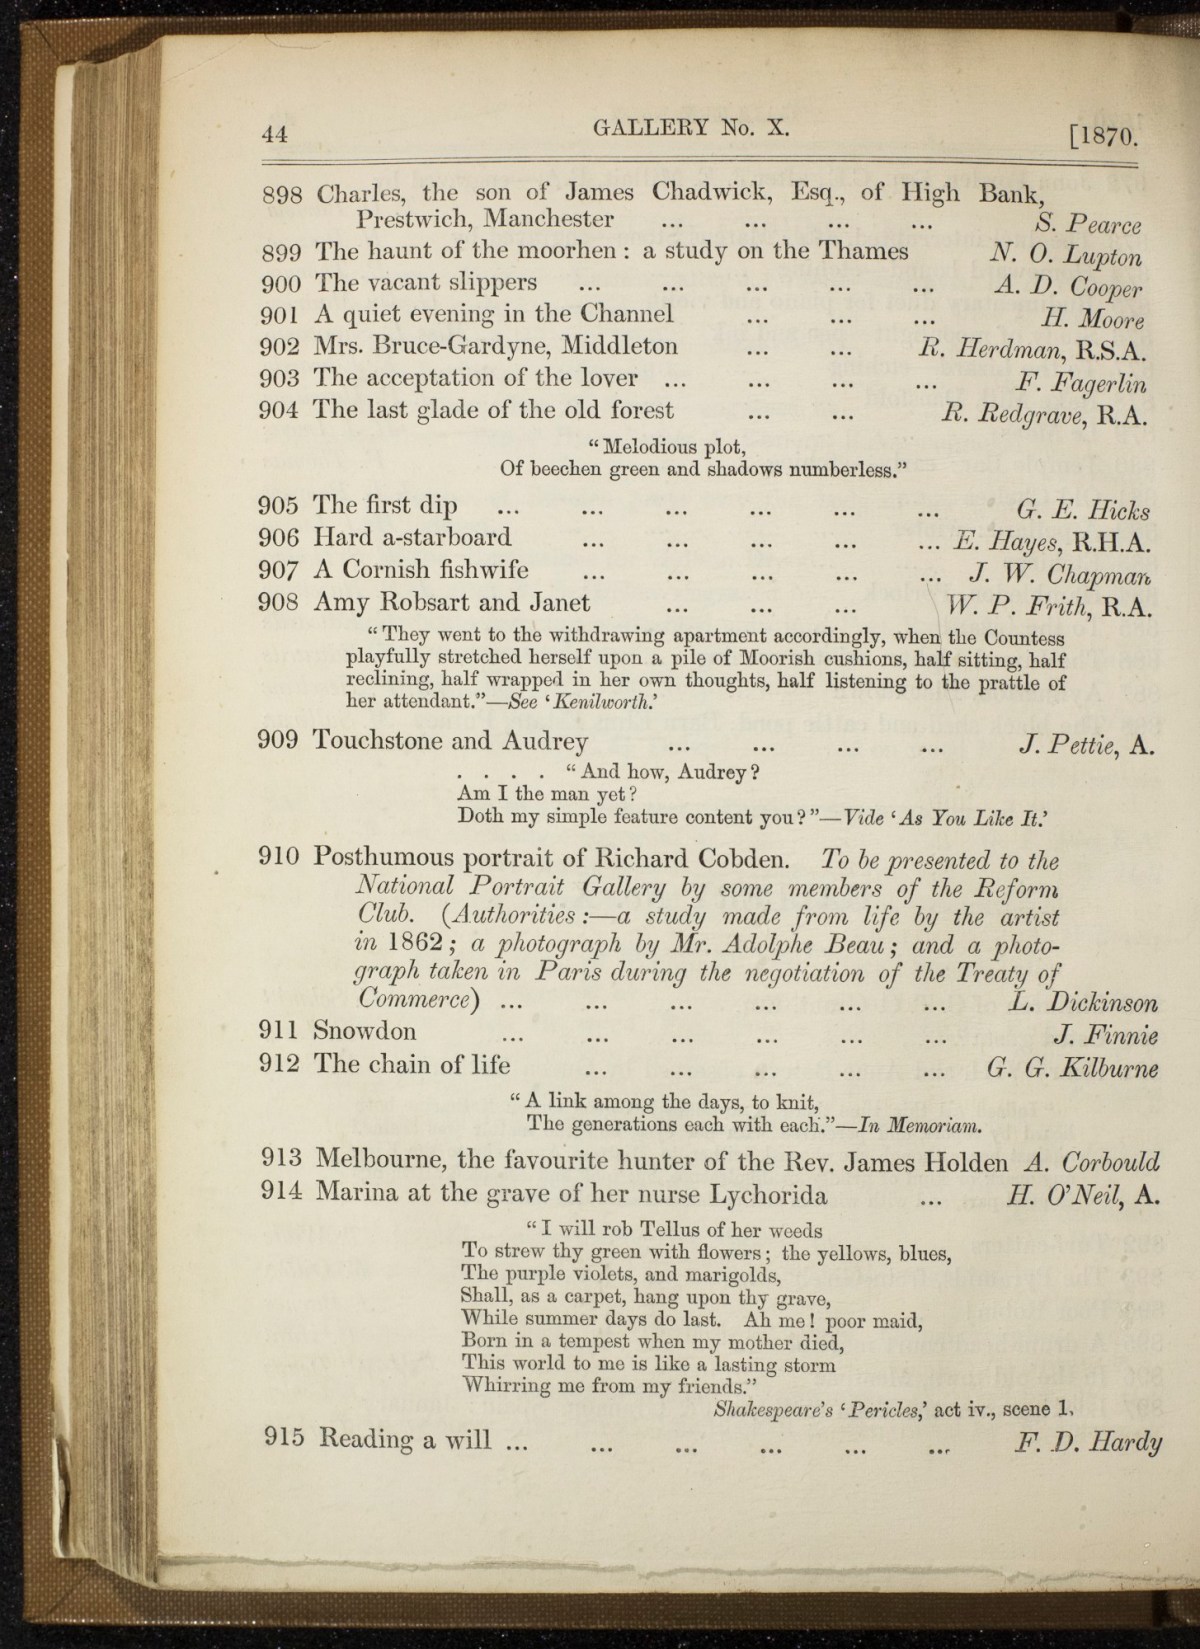 44 GALLERY No. X. [1870.
898 Charles, the son of James Chadwick, Esq., of High Bank,
Prestwich, Manchester ... ... ... ... S. Pearce
899 The haunt of the moorhen : a study on the Thames N. O. Lupton
900 The vacant slippers ... ... ... ... ... A. D. Cooper
901 A quiet evening in the Channel ... ... ... H. Moore
902 Mrs. Bruce-Gardyne, Middleton ... ... R. Herdman, R.S.A.
903 The acceptation of the lover ... ... ... ... F. Fagerlin
904 The last glade of the old forest ... ... R. Redgrave, R.A.
“Melodious plot,
Of beechen green and shadows numberless.”
905 The first dip ... ... ... ... ... ... G. E. Hicks
906 Hard a-starboard ... ... ... ... ... E. Hayes, R.H.A.
907 A Cornish fishwife ... ... ... ... ... J. W. Chapman
908 Amy Robsart and Janet ... ... ... W. P. Frith, R.A.
“They went to the withdrawing apartment accordingly, when the Countess
playfully stretched herself upon a pile of Moorish cushions, half sitting, half
reclining, half wrapped in her own thoughts, half listening to the prattle of
her attendant.”—See ‘Kenilworth.’
909 Touchstone and Audrey ... ... ... ... J. Pettie, A.
. . . . “And how, Audrey?
Am I the man yet?
Doth my simple feature content you?”—Vide ‘As You Like It.’
910 Posthumous portrait of Richard Cobden. To be presented to the
National Portrait Gallery by some members of the Reform
Club. (Authorities :—a study made from life by the artist
in 1862; a photograph by Mr. Adolphe Beau; and a photo-
graph taken in Paris during the negotiation of the Treaty of
Commerce) ... ... ... ... ... ... L. Dickinson
911 Snowdon ... ... ... ... ... ... J. Finnie
912 The chain of life ... ... ... ... ... G. G. Kilburne
“A link among the days, to knit,
The generations each with each.”—In Memoriam.
913 Melbourne, the favourite hunter of the Rev. James Holden A. Corbould
914 Marina at the grave of her nurse Lychorida ... H. O'Neil, A.
“I will rob Tellus of her weeds
To strew thy green with flowers; the yellows, blues,
The purple violets, and marigolds,
Shall, as a carpet, hang upon thy grave,
While summer days do last. Ah me! poor maid,
Born in a tempest when my mother died,
This world to me is like a lasting storm
Whirring me from my friends.”
Shakespeare's ‘Pericles,’ act iv., scene 1.
915 Reading a will ... ... ... ... ... ... F. D. Hardy